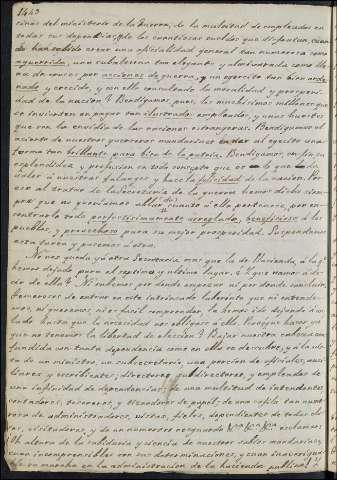 1443
cinas del ministerio de la Guerra, de la multitud de empleados en
todas sus dependencias, de los cuantiosos sueldos que disfrutan, cuan-
do han sabido crear una oficialidad general tan numerosa como
aguerrida, una subalterna tan elegante y
de cruces por acciones de guerra, y un ejercito tan bien orde-
nado y crecido, y con ello consultando la moralidad y prosperi-
dad de la nacion? Bendigamos, pues, los muchisimos millones que
se invierten en pagar tan ilustrados empleados, y unas huestes
que son la envidia de las naciones estrangeras. Bendigamos el
acierto de nuestros guerreros mandarines en dar al ejercito una
forma tan brillante para bien de la patria. Bendigamos, en fin, su
esplendidez y profusion en todo
valor á nuestras falanges y hace la felicidad de la nacion. Por
eso al tratar de la secretaría de la guerra hemos dicho siem-
pre que no queriamos hablar de cuanto á ella pertenece, por en-
contrarlo todo perfectisimamente arreglado, beneficioso á los
pueblos, y provechoso para su mejor prosperidad. Suspendamos
esta tarea y pasemos á otra.
No nos queda ya otra Secretaria mas que la de Hacienda, á la q.
hemos dejado para el septimo y ultimo lugar. ¿Y que vamos á de-
cir de ella? Ni sabemos por donde empezar ni por donde concluir.
Temerosos de entrar en este intrincado laberinto que ni entende-
mos, ni queremos, ni es facil comprender, la hemos ido dejando á un
lado hasta que la necesidad nos obligara á ello. Porque hacer ya
que no tenemos la libertad de eleccion? Dejar nuestra cabeza con-
fundida con tanta dependencia como en ella se descubre, y á la vis-
ta de un ministro, un subsecretario una porcion de oficiales, aus-
iliares y escribientes; directores, subdirectores, y empleados de
una infinidad de dependencias; de una multitud de intendentes
contadores, tesoreros, y tiznadores de papel; de una cafila tan nume-
rosa de administradores, vistas, fieles, dependientes de todas cla-
ses, visitadores, y de un numeroso resguardo &ª &ª &ª esclamar:
¡Oh alteza de la sabiduria y ciencia de nuestros sabios mandarines,
cuan incomprensibles son sus determinaciones, y cuan inaverigua-
ble su marcha en la administracion de la hacienda publica!!!